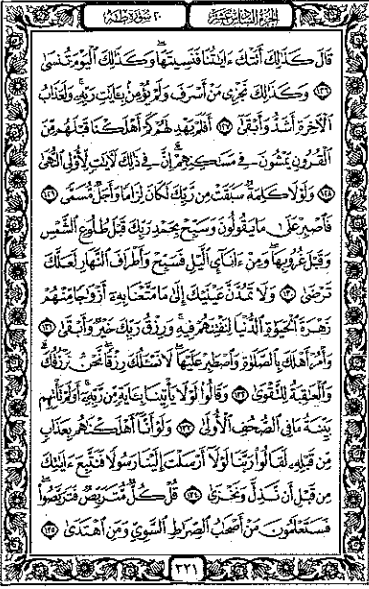 الجزء السادس عشر
٢٠ سورة طه
قَالَ كَذَٰلِكَ أَتَتْكَ ءَايَٰتُنَا فَنَسِيتَهَا ۖ وَكَذَٰلِكَ ٱلْيَوْمَ تُنسَىٰ
﴿١٢٦﴾ وَكَذَٰلِكَ نَجْزِى مَنْ أَسْرَفَ وَلَمْ يُؤْمِنۢ بِـَٔايَٰتِ رَبِّهِۦ ۚ وَلَعَذَابُ
ٱلْءَاخِرَةِ أَشَدُّ وَأَبْقَىٰٓ ﴿١٢٧﴾ أَفَلَمْ يَهْدِ لَهُمْ كَمْ أَهْلَكْنَا قَبْلَهُم مِّنَ
ٱلْقُرُونِ يَمْشُونَ فِى مَسَٰكِنِهِمْ ۗ إِنَّ فِى ذَٰلِكَ لَءَايَٰتٍ لِّأُو۟لِى ٱلنُّهَىٰ
﴿١٢٨﴾ وَلَوْلَا كَلِمَةٌ سَبَقَتْ مِن رَّبِّكَ لَكَانَ لِزَامًا وَأَجَلٌ مُّسَمًّى ﴿١٢٩﴾
فَٱصْبِرْ عَلَىٰ مَا يَقُولُونَ وَسَبِّحْ بِحَمْدِ رَبِّكَ قَبْلَ طُلُوعِ ٱلشَّمْسِ
وَقَبْلَ غُرُوبِهَا ۖ وَمِنْ ءَانَآئِ ٱلَّيْلِ فَسَبِّحْ وَأَطْرَافَ ٱلنَّهَارِ لَعَلَّكَ
تَرْضَىٰ ﴿١٣٠﴾ وَلَا تَمُدَّنَّ عَيْنَيْكَ إِلَىٰ مَا مَتَّعْنَا بِهِۦٓ أَزْوَٰجًا مِّنْهُمْ
زَهْرَةَ ٱلْحَيَوٰةِ ٱلدُّنْيَا لِنَفْتِنَهُمْ فِيهِ ۚ وَرِزْقُ رَبِّكَ خَيْرٌ وَأَبْقَىٰ ﴿١٣١﴾
وَأْمُرْ أَهْلَكَ بِٱلصَّلَوٰةِ وَٱصْطَبِرْ عَلَيْهَا ۖ لَا نَسْـَٔلُكَ رِزْقًا ۖ نَّحْنُ نَرْزُقُكَ ۗ
وَٱلْعَٰقِبَةُ لِلتَّقْوَىٰ ﴿١٣٢﴾ وَقَالُوا۟ لَوْلَا يَأْتِينَا بِـَٔايَةٍ مِّن رَّبِّهِۦٓ ۚ أَوَلَمْ تَأْتِهِم
بَيِّنَةُ مَا فِى ٱلصُّحُفِ ٱلْأُولَىٰ ﴿١٣٣﴾ وَلَوْ أَنَّآ أَهْلَكْنَٰهُم بِعَذَابٍ
مِّن قَبْلِهِۦ لَقَالُوا۟ رَبَّنَا لَوْلَآ أَرْسَلْتَ إِلَيْنَا رَسُولًا فَنَتَّبِعَ ءَايَٰتِكَ
مِن قَبْلِ أَن نَّذِلَّ وَنَخْزَىٰ ﴿١٣٤﴾ قُلْ كُلٌّ مُّتَرَبِّصٌ فَتَرَبَّصُوا۟ ۖ
فَسَتَعْلَمُونَ مَنْ أَصْحَٰبُ ٱلصِّرَٰطِ ٱلسَّوِىِّ وَمَنِ ٱهْتَدَىٰ ﴿١٣٥﴾
٣٢١